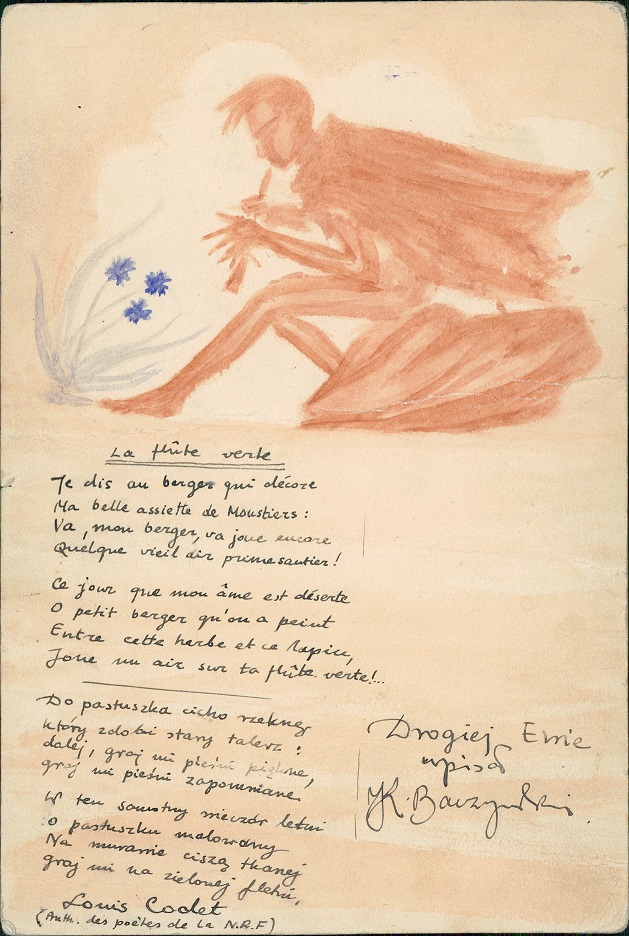 La flûte verte
Je dis au berger qui décore
Ma belle assiette de Moustiers :
Va, mon berger, va joue encore
Quelque vieil air primesautier !
Ce jour que mon âme est déserte
O petit berger qu'on a peint
Entre cette herbe et ce lapin,
Joue un air sur ta flûte verte!...
Do pastuszka cicho rzeknę
który zdobi stary talerz :
dalej, graj mi pieśni piękne,
graj mi pieśni zapomniane.
W ten samotny wieczór letni
o pastuszku malowany
Na murawie ciszą tkanej
graj mi na zielonej fletni,
Louis Codet
(Anth. des poètes de la N.R.F)
Drogiej Ewie
wpisał
K. Baczyński